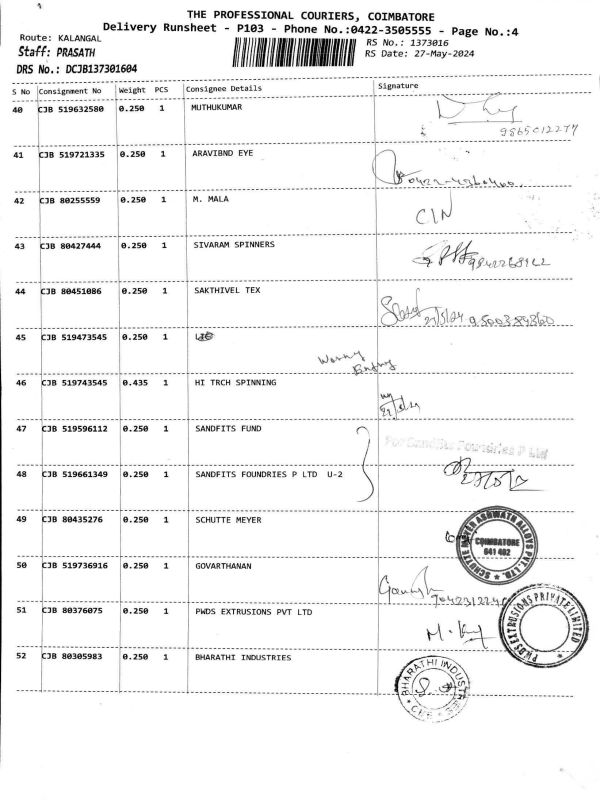 THE PROFESSIONAL COURIERS, COIMBATORE
Delivery Runsheet - P103 - Phone No.:0422-3505555 - Page No.:4
Route: KALANGAL
RS No.: 1373016
Staff: PRASATH
RS Date: 27-May-2024
DRS No.: DCJB137301604
S No Consignment No Weight PCS Consignee Details Signature
40 CJB 519632580 0.250 1 MUTHUKUMAR
9865012277
41 CJB 519721335 0.250 1 ARAVIBND EYE
42 CJB 80255559 0.250 1 M. MALA
43 CJB 80427444 0.250 1 SIVARAM SPINNERS
44 CJB 80451086 0.250 1 SAKTHIVEL TEX
45 CJB 519473545 0.250 1
Wrong
Entry
46 CJB 519743545 0.435 1 HI TRCH SPINNING
47 CJB 519596112 0.250 1 SANDFITS FUND
For Sandfits Foundries P Ltd
48 CJB 519661349 0.250 1 SANDFITS FOUNDRIES P LTD U-2
49 CJB 80435276 0.250 1 SCHUTTE MEYER
SCHUTTE MEYER ASHWATH ALLOYS PVT. LTD.
COIMBATORE
641 402
50 CJB 519736916 0.250 1 GOVARTHANAN
51 CJB 80376075 0.250 1 PWDS EXTRUSIONS PVT LTD
PWDS EXTRUSIONS PRIVATE LIMITED
52 CJB 80305983 0.250 1 BHARATHI INDUSTRIES
BHARATHI INDUSTRIES